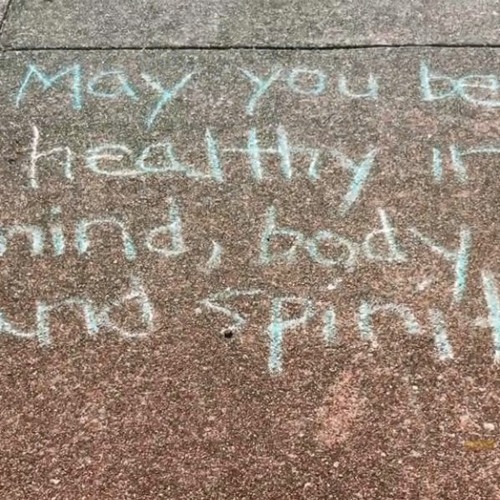 May you be
healthy in
mind, body
and spirit